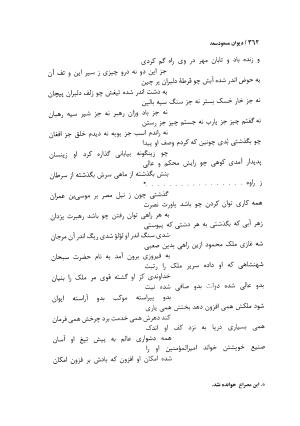 ۳۶۲ / دیوان مسعودسعد
و زنده باد و تابان مهر در وی راه گم کردی
جز این دو نه درو چیزی ز سیر این و تف آن
به حوض اندر شده آبش چو قرطهٔ دلبران پر چین
به دشت اندر شده تیغش چو زلف دلبران پیچان
نه جز خار خسک بستر نه جز سنگ سیه بالین
نه جز باد وزان رهبر نه جز شیر سیه رهبان
نه گفتم چیز جز یارب نه جستم چیز جز رستن
نه راندم اسب جز پویه نه دیدم خلق جز افغان
چو بگذشتی بُدی چونین که کردم وصف او پیدا
چو زینگونه بیابانی گذاره کرد او زینسان
پدیدار آمدی کوهی چو رایش محکم و عالی
بنش بگذشته از ماهی سرش بگذشته از سرطان
ز راوه . . . . . . . . . . . . . . . . . . . *
گذشتی چون ز نیل مصر بر موسی‌بن عمران
همه کاری توان کردن چو باشد یاورت نصرت
به هر راهی توان رفتن چو باشد رهبرت یزدان
زهر آبی که بگذشتی به هر دشتی که پیوستی
شدی سنگ اندر او لؤلؤ شدی ریگ اندر آن مرجان
شه غازی ملک محمود ازین راهی بدین صعبی
به فیروزی برون آمد به نام حضرت سبحان
شهنشاهی که او داده سریر ملک را رتبت
خداوندی کز او گشته قوی مر ملک را بنیان
بدو عالی شده دولت بدو صافی شده نیت
بدو پیراسته موکب بدو آراسته ایوان
شود ملکش همی افزون دهد بختش همی یاری
کند دهرش همی خدمت برد چرخش همی فرمان
همی بسیاری دریا به نزد کف او اندک
همه دشواری عالم به پیش تیغ او آسان
صنیع خویشتن خواند امیرالمؤمنین او را
شده امکان او افزون که بادش بر فزون امکان
ه. این مصراع خوانده نشد.